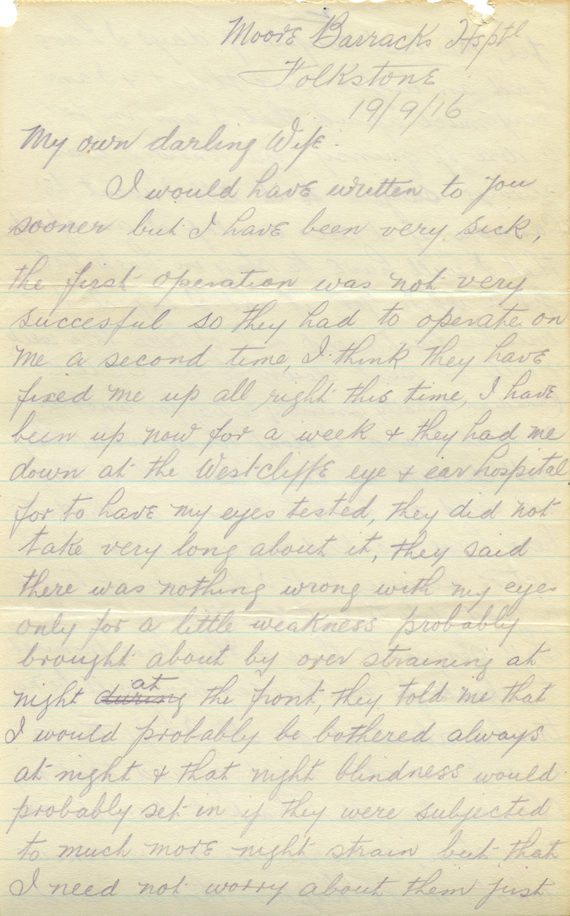 Moore Barracks Hsptl
Folkstone
19/9/16
My own darling Wife.
I would have written to you
sooner but I have been very sick,
the first operation was not very
succesful so they had to operate on
me a second time, I think they have
fixed me up all right this time, I have
been up now for a week & they had me
down at the Westcliffe eye & ear hospital
for to have my eyes tested, they did not
take very long about it, they said
there was nothing wrong with my eyes
only for a little weakness probably
brought about by over straining at
night during at the front, they told me that
I would probably be bothered always
at night & that night blindness would
probably set in if they were subjected
to much more night strain but that
I need not worry about them just